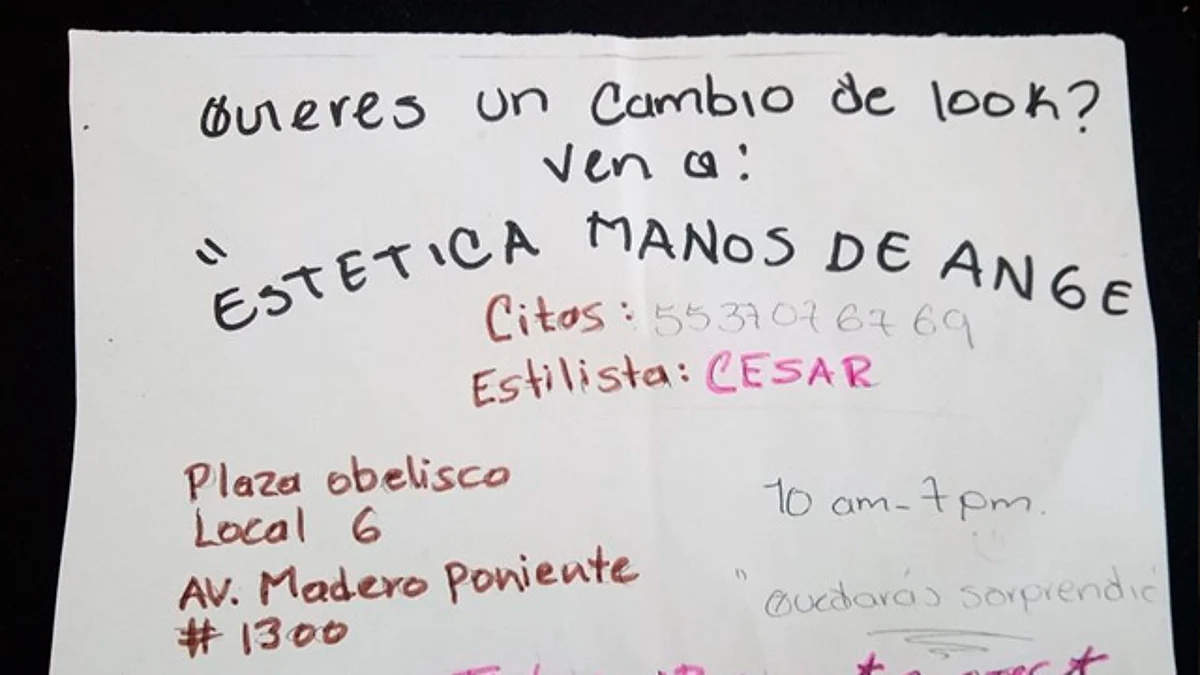 Quieres un cambio de look?
Ven a:
"ESTETICA MANOS DE ANGE
Citas: 5537076769
Estilista: CESAR
Plaza obelisco
Local 6
AV. Madero Poniente
# 1300
10 am-7pm.
"Quedarás sorprendid